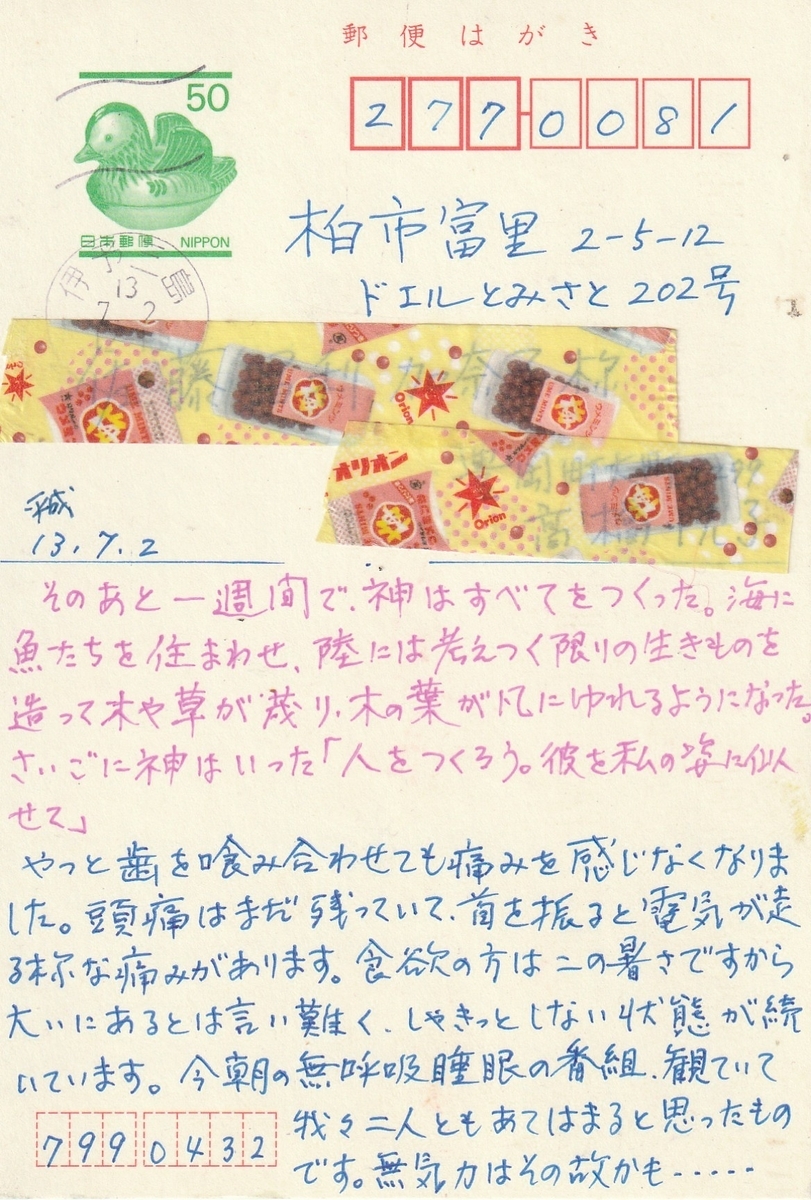 郵便はがき
50
日本郵便 NIPPON
伊予三島
13
7 2
2770081
柏市富里 2-5-12
ドエルとみさと 202号
佐藤
Orion
オリオン
Orion
平成
13.7.2
そのあと一週間で、神はすべてをつくった。海に
魚たちを住まわせ、陸には考えつく限りの生きものを
造って木や草が茂り、木の葉が風にゆれるようになった。
さいごに神はいった「人をつくろう。彼を私の姿に似
せて」
やっと歯を喰み合わせても痛みを感じなくなりま
した。頭痛はまだ残っていて、首を振ると電気が走
る様な痛みがあります。食欲の方はこの暑さですから
大いにあるとは言い難く、しゃきっとしない状態が続
いています。今朝の無呼吸睡眠の番組、観ていて
我々二人ともあてはまると思ったもの
です。無気力はその故かも・・・・・
7990432